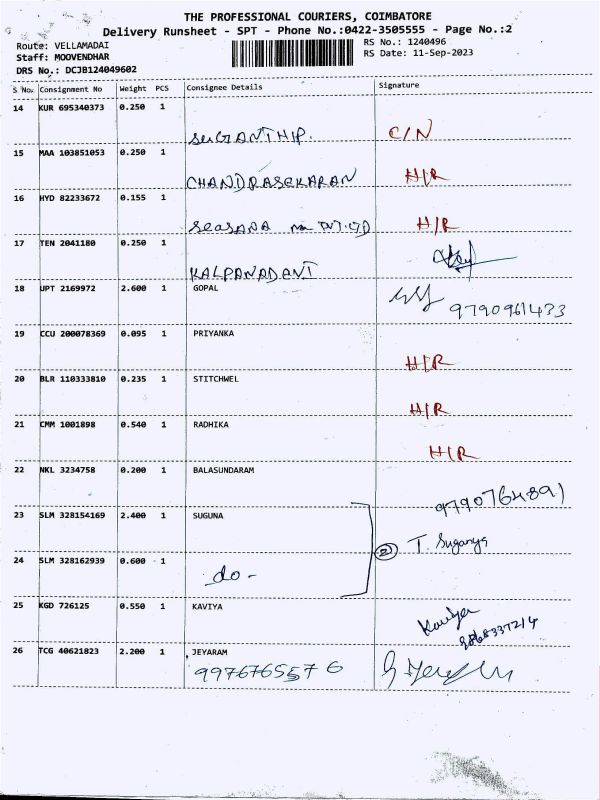 THE PROFESSIONAL COURIERS, COIMBATORE
Delivery Runsheet - SPT - Phone No.:0422-3505555 - Page No.:2
Route: VELLAMADAI
Staff: MOOVENDHAR
DRS No.: DCJB124049602
RS No.: 1240496
RS Date: 11-Sep-2023
S No. Consignment No Weight PCS Consignee Details Signature
14 KUR 695340373 0.250 1
SUGANTHI P. C/N
15 MAA 103851053 0.250 1
CHANDRASEKARAN H/R
16 HYD 82233672 0.155 1
PVT. LTD H/R
17 TEN 2041180 0.250 1
KALPANA DANT
18 UPT 2169972 2.600 1 GOPAL
9790961433
19 CCU 200078369 0.095 1 PRIYANKA
H/R
20 BLR 110333810 0.235 1 STITCHWEL
H/R
21 CMM 1001898 0.540 1 RADHIKA
H/R
22 NKL 3234758 0.200 1 BALASUNDARAM
9790764891
23 SLM 328154169 2.400 1 SUGUNA
② T. Suganya
24 SLM 328162939 0.600 1
do -
25 KGD 726125 0.550 1 KAVIYA
Kaviya
26 TCG 40621823 2.200 1 JEYARAM
9976765576